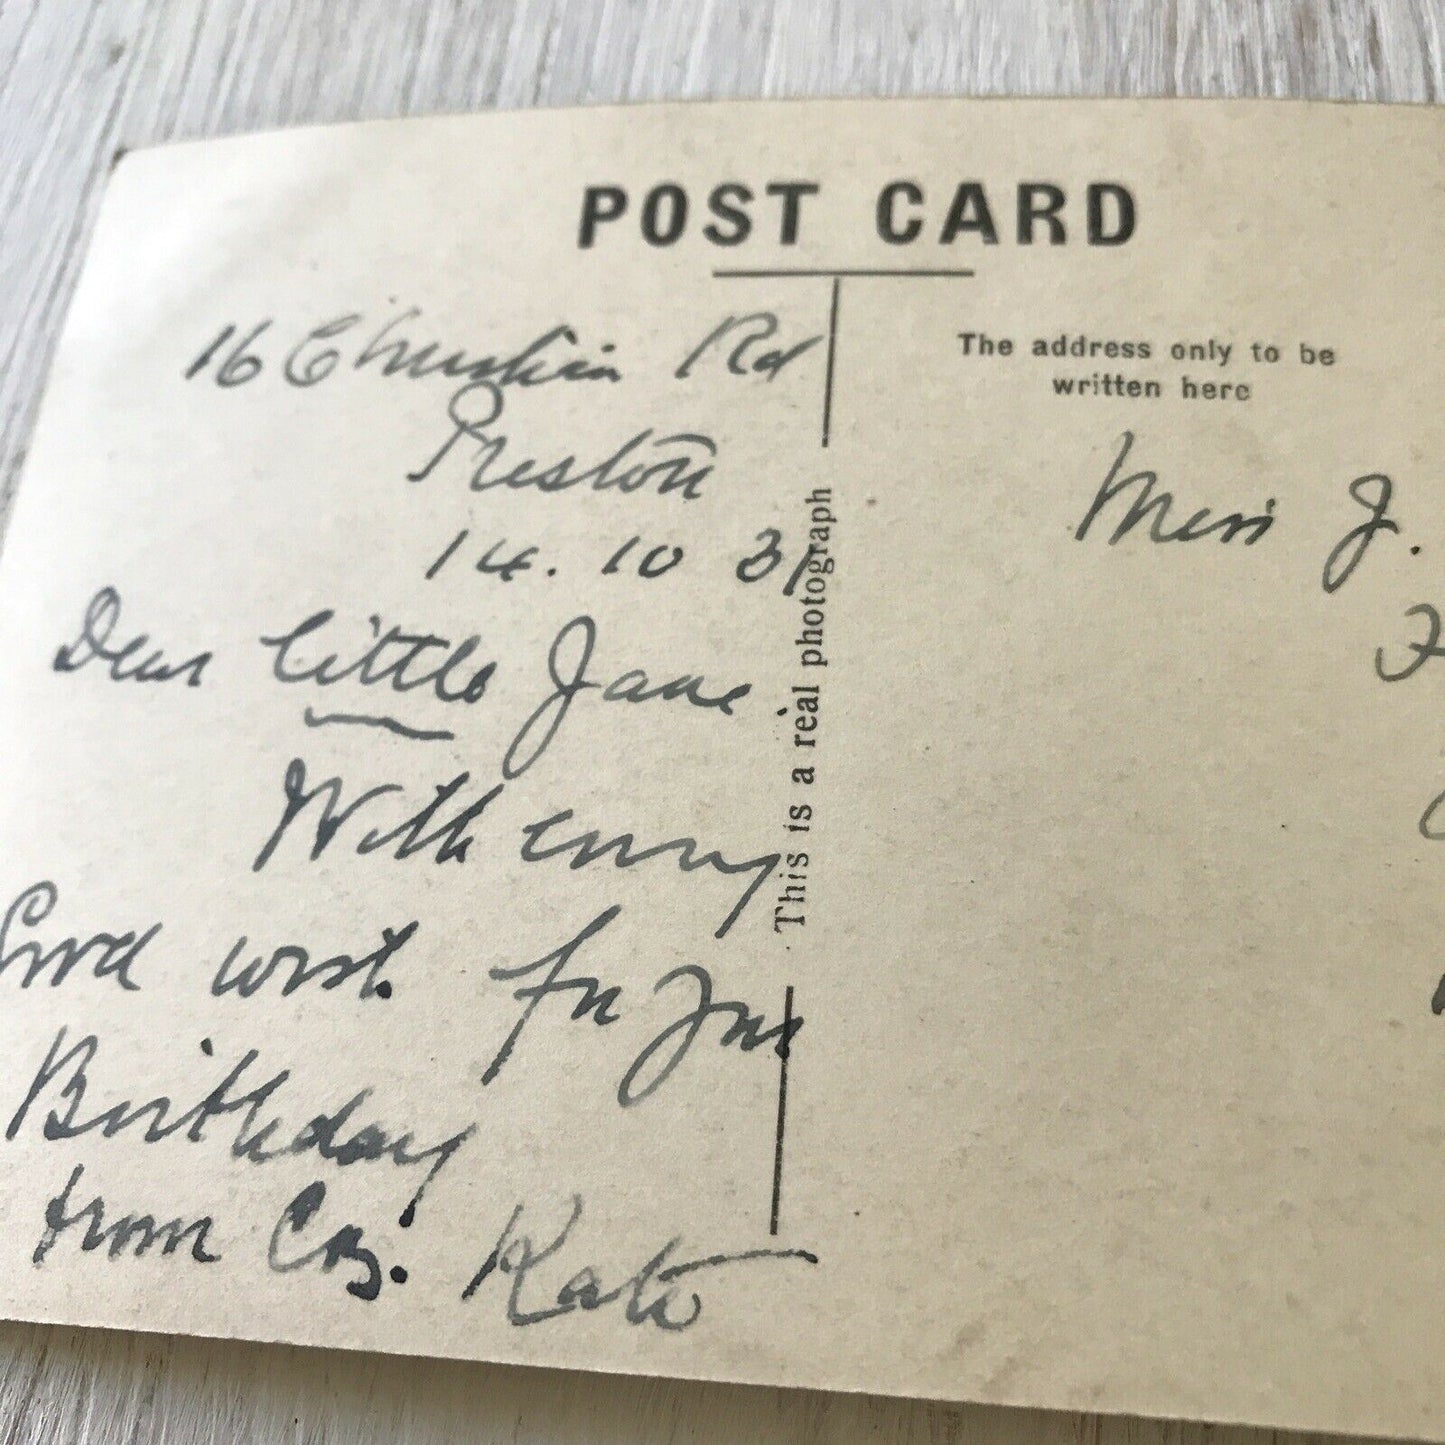 POST CARD
16 Christian Rd
Preston
14. 10 31
Dear little Jane
With every
Good wish. for your
Birthday
from Cos. Kate
This is a real photograph
The address only to be
written here
Miss J.